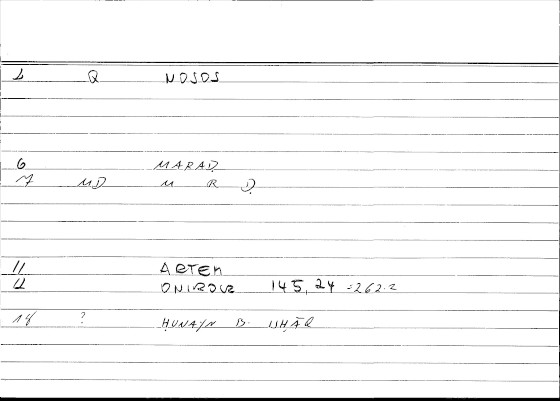 1 Q NOSOS
6 MARAḌ
7 MD M R Ḍ
11 ARTEM
12 ONIROCR 145,24 =262.2
14 ? ḤUNAYN B. ISḤĀQ